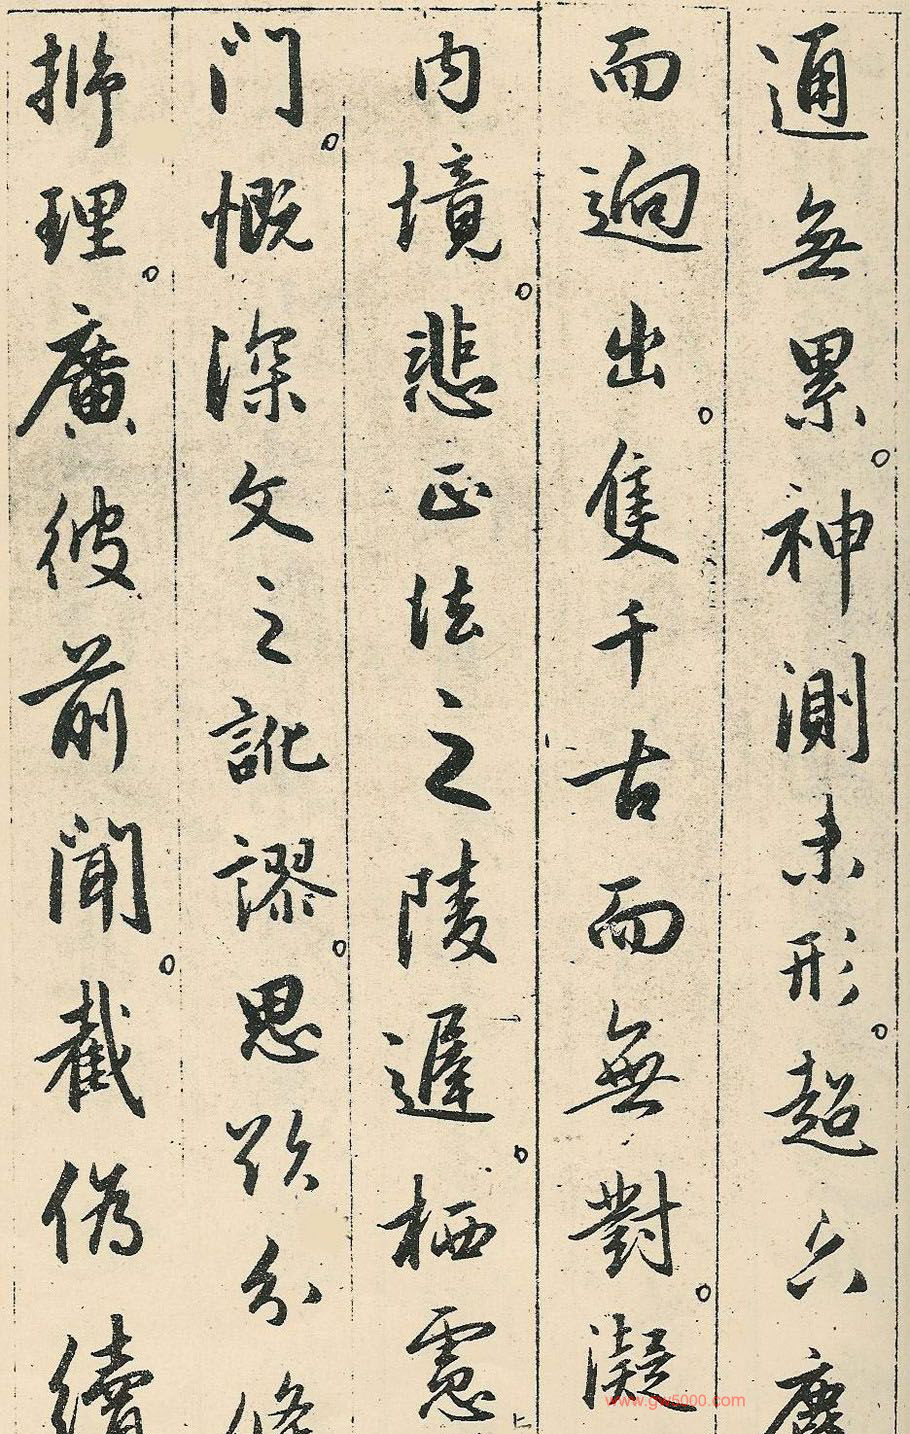 通無累。神測未形。超六塵
而逈出。隻千古而無對。凝
內境。悲正法之陵遲。栖慮
門。慨深文之訛謬。思欲分條
析理。廣彼前聞。截偽續
www.gw5000.com